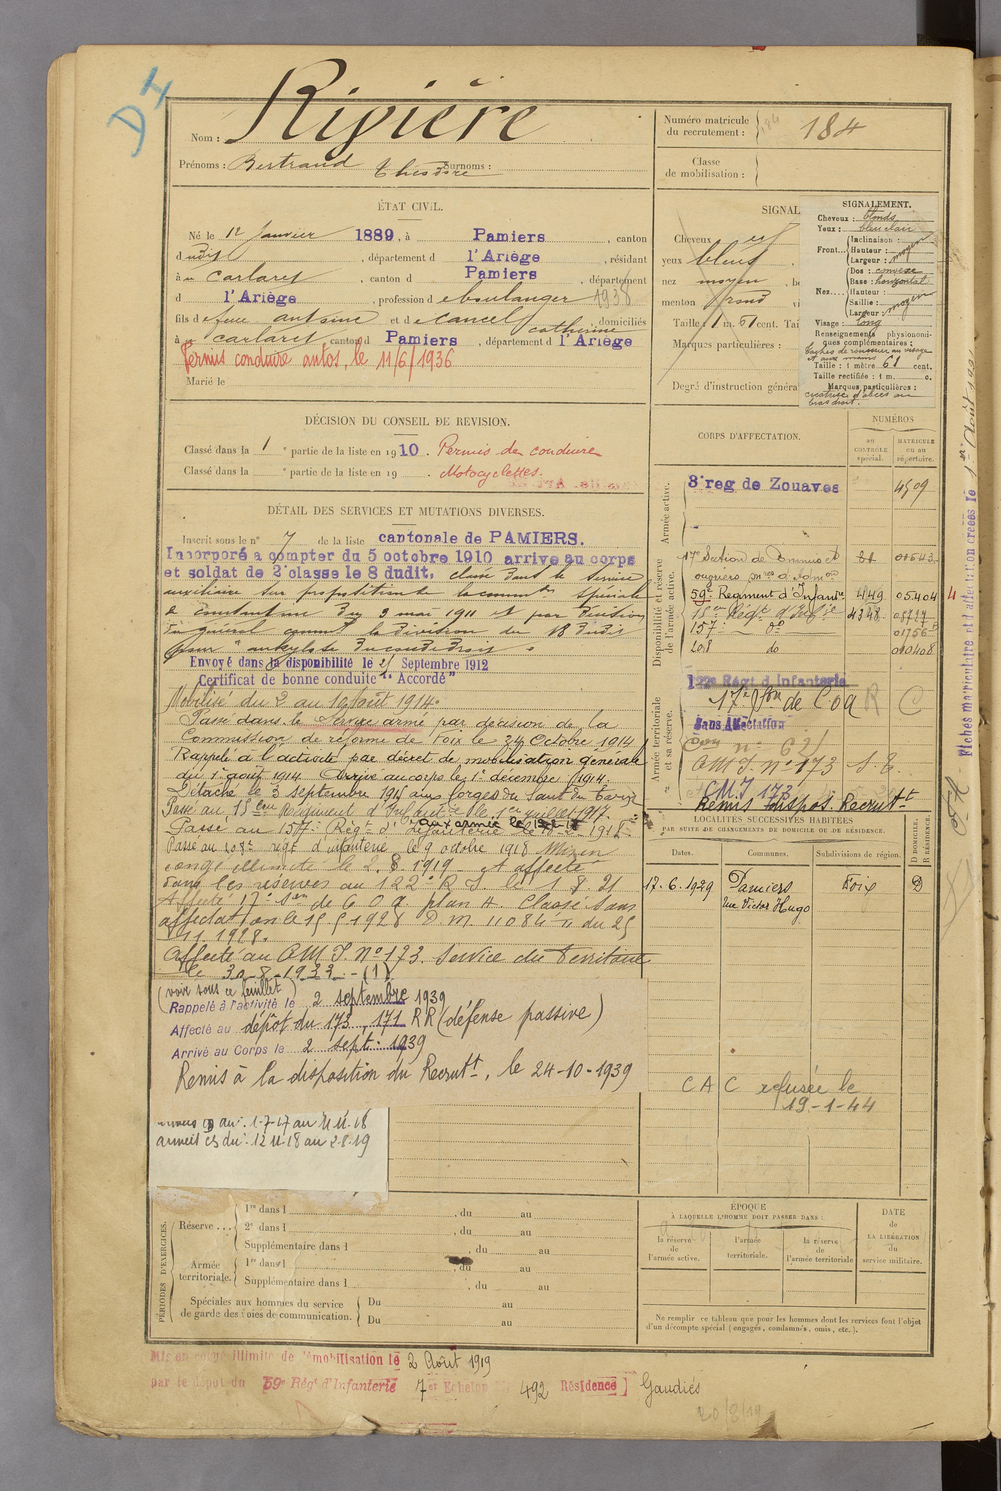 D I
Nom : Rivière
Prénoms : Bertrand Théodore Surnoms :
Numéro matricule du recrutement : 184
Classe de mobilisation :
ÉTAT CIVIL.
Né le 12 Janvier 1889, à Pamiers, canton
dudit, département d l'Ariège, résidant
à Carlaret, canton d Pamiers, département
d l'Ariège, profession d boulanger 1938
fils d feu Antoine et d Cancel Catherine, domiciliés
à Carlaret, canton d Pamiers, département d l'Ariège
Permis conduire autos, le 11/6/1936
Marié le
SIGNAL
Cheveux
yeux bleus
nez moyen
menton rond
Taille 1 m. 61 cent. Tai
Marques particulières :
Degré d'instruction généra
SIGNALEMENT.
Cheveux : blonds
Yeux : bleu clair
Front
Inclinaison :
Hauteur : moyen
Largeur :
Nez
Dos : convexe
Base : horizontal
Hauteur :
Saillie : moyen
Largeur :
Visage : long
Renseignements physionomiques complémentaires :
taches de rousseur au visage
et aux mains
Taille : 1 mètre 61 cent.
Taille rectifiée : 1 m. c.
Marques particulières :
cicatrice d'abcès au
bras droit.
DÉCISION DU CONSEIL DE REVISION.
Classé dans la 1 e partie de la liste en 1910. Permis de conduire
Classé dans la e partie de la liste en 19 . Motocyclettes.
DÉTAIL DES SERVICES ET MUTATIONS DIVERSES.
Inscrit sous le n° 7 de la liste cantonale de PAMIERS.
Incorporé a compter du 5 octobre 1910 arrive au corps
et soldat de 2e classe le 8 dudit, classé dans le service
auxiliaire sur proposition de la common spéciale
de Constantine du 9 mai 1911 et par décision
du général commt la Division du 18 dudit
pour "ankylose du coude droit".
Envoyé dans la disponibilité le 25 Septembre 1912
Certificat de bonne conduite "Accordé"
Mobilisé du 2 au 19 Août 1914.
Passé dans le Service armé par décision de la
Commission de réforme de Foix le 24 Octobre 1914
Rappelé à l'activité par décret de mobilisation générale
du 1er août 1914. Arrivé au corps le 1er décembre 1914.
Détaché le 3 septembre 1915 aux forges du Saut du Tarn
Passé au 15eme Régiment d'Infanterie le 1er juillet 1917.
aux armée le
Passé au 157e Régt d'Infanterie le 1918
Passé au 208e régt d'infanterie le 9 octobre 1918 Mis en
congé illimité le 2.8.1919 et affecté
dans les réserves au 122e R I. le 1.8.21
Affecté 17e Son de C.O.A. plan A. Classé sans
affectation le 15 5 1928 D.M. 11084 11 du 25
11.1928.
Affecté au C.M.I. N° 173. Service du Territoire
le 30-8-1933.-(1)
(voir sous ce feuillet)
Rappelé à l'activité le 2 septembre 1939
Affecté au dépôt du 173, 171 RR (défense passive)
Arrivé au Corps le 2 sept. 1939
Remis à la disposition du Recrutt, le 24-10-1939
au : 1-7-17 au 11.11.18
du : 12.11.18 au 2.8.19
CORPS D'AFFECTATION.
NUMÉROS
AU CONTRÔLE spécial.
MATRICULE ou au répertoire.
Armée active.
3e reg de Zouaves 4509
Disponibilité et réserve de l'armée active.
17e Section de Commis et 01543
ouvriers mres d'Admon
59e Régiment d'Infanie 449 05404
15eme Régt d'Infie 4348
157e do 01756
208 do 010408
Armée territoriale et sa réserve.
122e Régt d'Infanterie
17e Son de COA R C
Sans Affectation
CMI. n° 173 S.T.
CMI 173
Remis Dispos. Recrutt
LOCALITÉS SUCCESSIVES HABITÉES
PAR SUITE DE CHANGEMENTS DE DOMICILE OU DE RÉSIDENCE.
Dates. Communes. Subdivisions de région. D DOMICILE. R RÉSIDENCE.
17.6.1929 Pamiers Foix D
Rue Victor Hugo
C A C refusée le
19-1-44
Fiches matriculaire et d'affectation créées le 1er Août 1921
PÉRIODES D'EXERCICES.
Réserve...
1re dans l , du au
2e dans l , du au
Supplémentaire dans l , du au
Armée territoriale.
1re dans l , du au
Supplémentaire dans l , du au
Spéciales aux hommes du service de garde des voies de communication.
Du au
Du au
ÉPOQUE
À LAQUELLE L'HOMME DOIT PASSER DANS :
la réserve de l'armée active.
l'armée territoriale.
la réserve de l'armée territoriale
DATE de LA LIBÉRATION du service militaire.
Ne remplir ce tableau que pour les hommes dont les services font l'objet
d'un décompte spécial (engagés, condamnés, omis, etc.).
Mis en congé illimité de démobilisation le 2 Août 1919
par le dépôt du 59e Régt d'Infanterie 7er Echelon 492 Résidence] Gaudiès
20/8/19